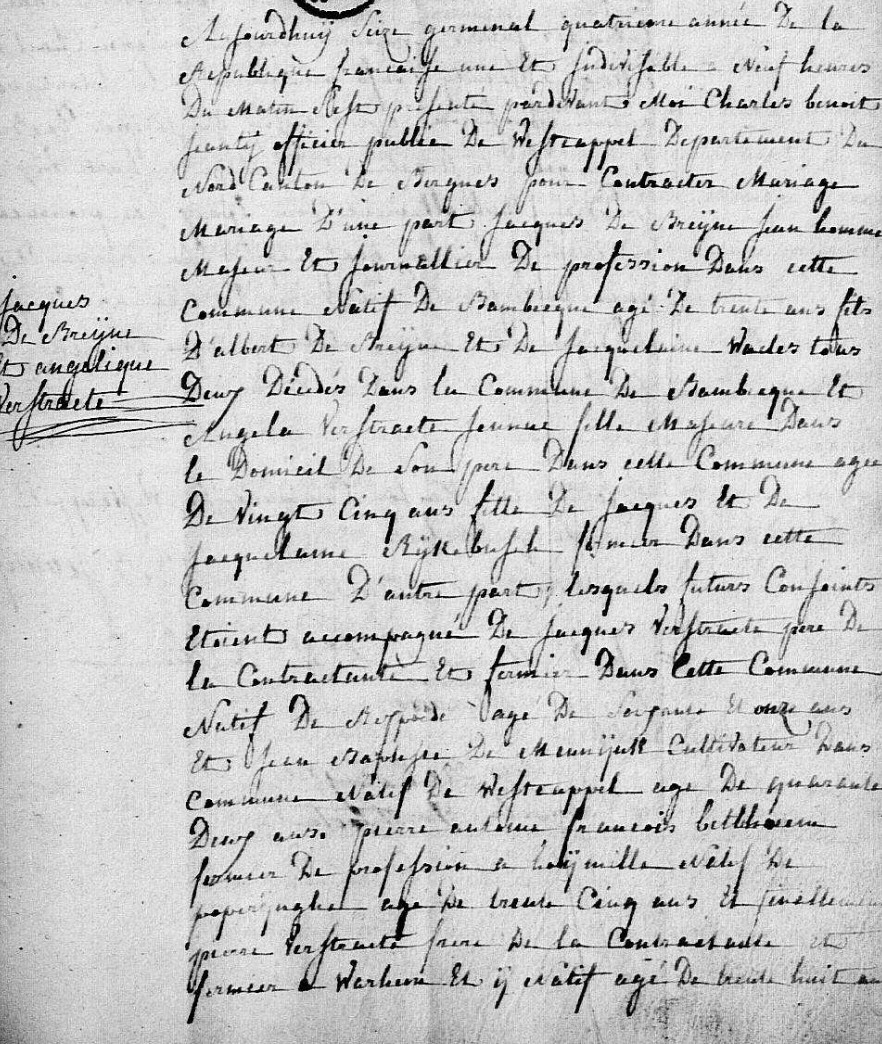 Aujourdhuij Seize germinal quatrieme année De la
Republique francaise une Et Indivisible a Neuf heures
Du Matin S'est presenté pardevant Moi Charles benoit
officier public De Westcappel Departement Du
Nord Canton De Bergues pour Contracter Mariage
Mariage D'une part Jacques De Breijne Jean homme
Majeur Et Journallier De profession Dans cette
Commune Natif De Bambecque agé De trente ans fils
D'albert De Breijne Et De Jacquelaine Waeles tous
Deux Décédés Dans la Commune De Bambecque Et
Jacques
De Breijne
Et angelique
Verstraete
Angela Verstraete Jeunne fille Majeure Dans
le Domicil De Son pere Dans cette Commune agee
De Vingt Cinq ans fille De Jacques Et De
Jacquelaine Rijkebusch fermier Dans cette
Commune D'autre part, lesquels futurs Conjoints
Etoient accompagné De Jacques Verstraete pere De
la Contractante Et fermier Dans Cette Commune
Natif De Rexpoëde agé De Soixante Et onze ans
Et Jean Baptiste De Cultivateur Dans
Commune Natif De Westcappel age De quarante
Deux ans. pierre antoine francois bethleem
fermier De profession a hoijmille Natif De
poperijnghe age De trente Cinq ans Et finallement
pierre Verstraete frere De la Contractante Et
fermier a Warhem Et ij Natif agé De trente huit an